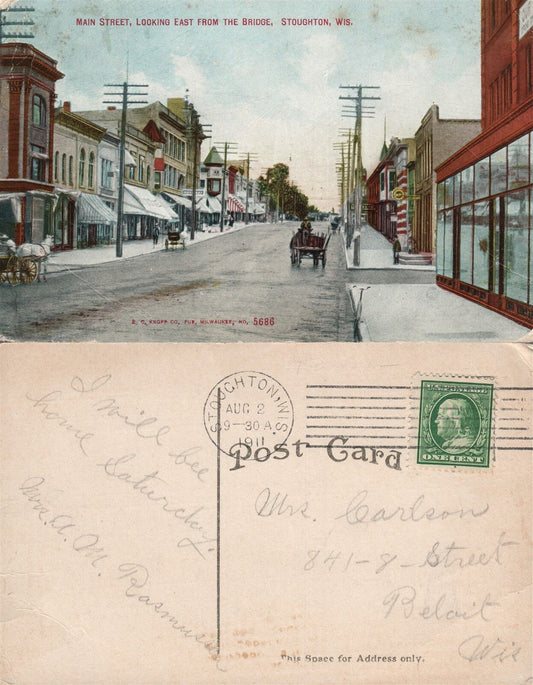 Main Street, Looking East from the Bridge, Stoughton, Wis.
E. C. Kropp Co., Pub., Milwaukee, No. 5686
STOUGHTON, WIS.
AUG 2
9-30 A.
1911
Post Card
U.S. POSTAGE
ONE CENT
I will bee
home Saturday.
Mrs. A. M. Rasmussen
Mrs. Carlson
841-8-Street
Beloit
Wis
This Space for Address only.